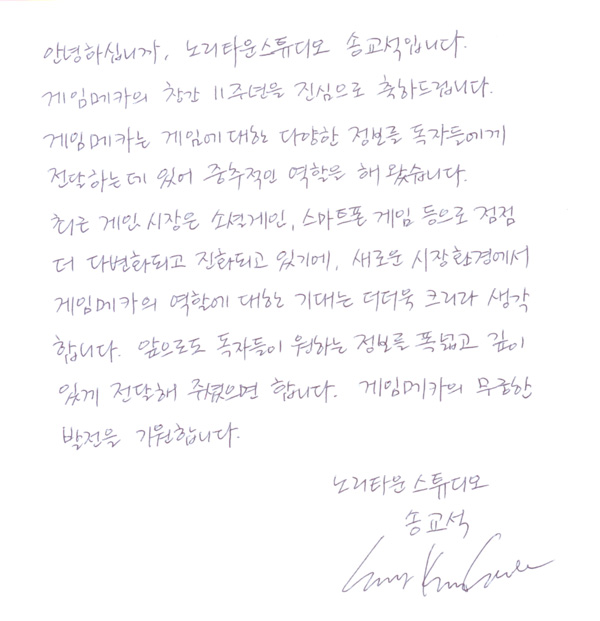 안녕하십니까, 노리타운스튜디오 송교석입니다.
게임메카의 창간 11주년을 진심으로 축하드립니다.
게임메카는 게임에 대한 다양한 정보를 독자들에게
전달하는데 있어 중추적인 역할을 해 왔습니다.
최근 게임 시장은 소셜게임, 스마트폰 게임 등으로 점점
더 다변화되고 진화되고 있기에, 새로운 시장환경에서
게임메카의 역할에 대한 기대는 더더욱 크리라 생각
합니다. 앞으로도 독자들이 원하는 정보를 폭넓고 깊이
있게 전달해 주셨으면 합니다. 게임메카의 무궁한
발전을 기원합니다.
노리타운 스튜디오
송교석